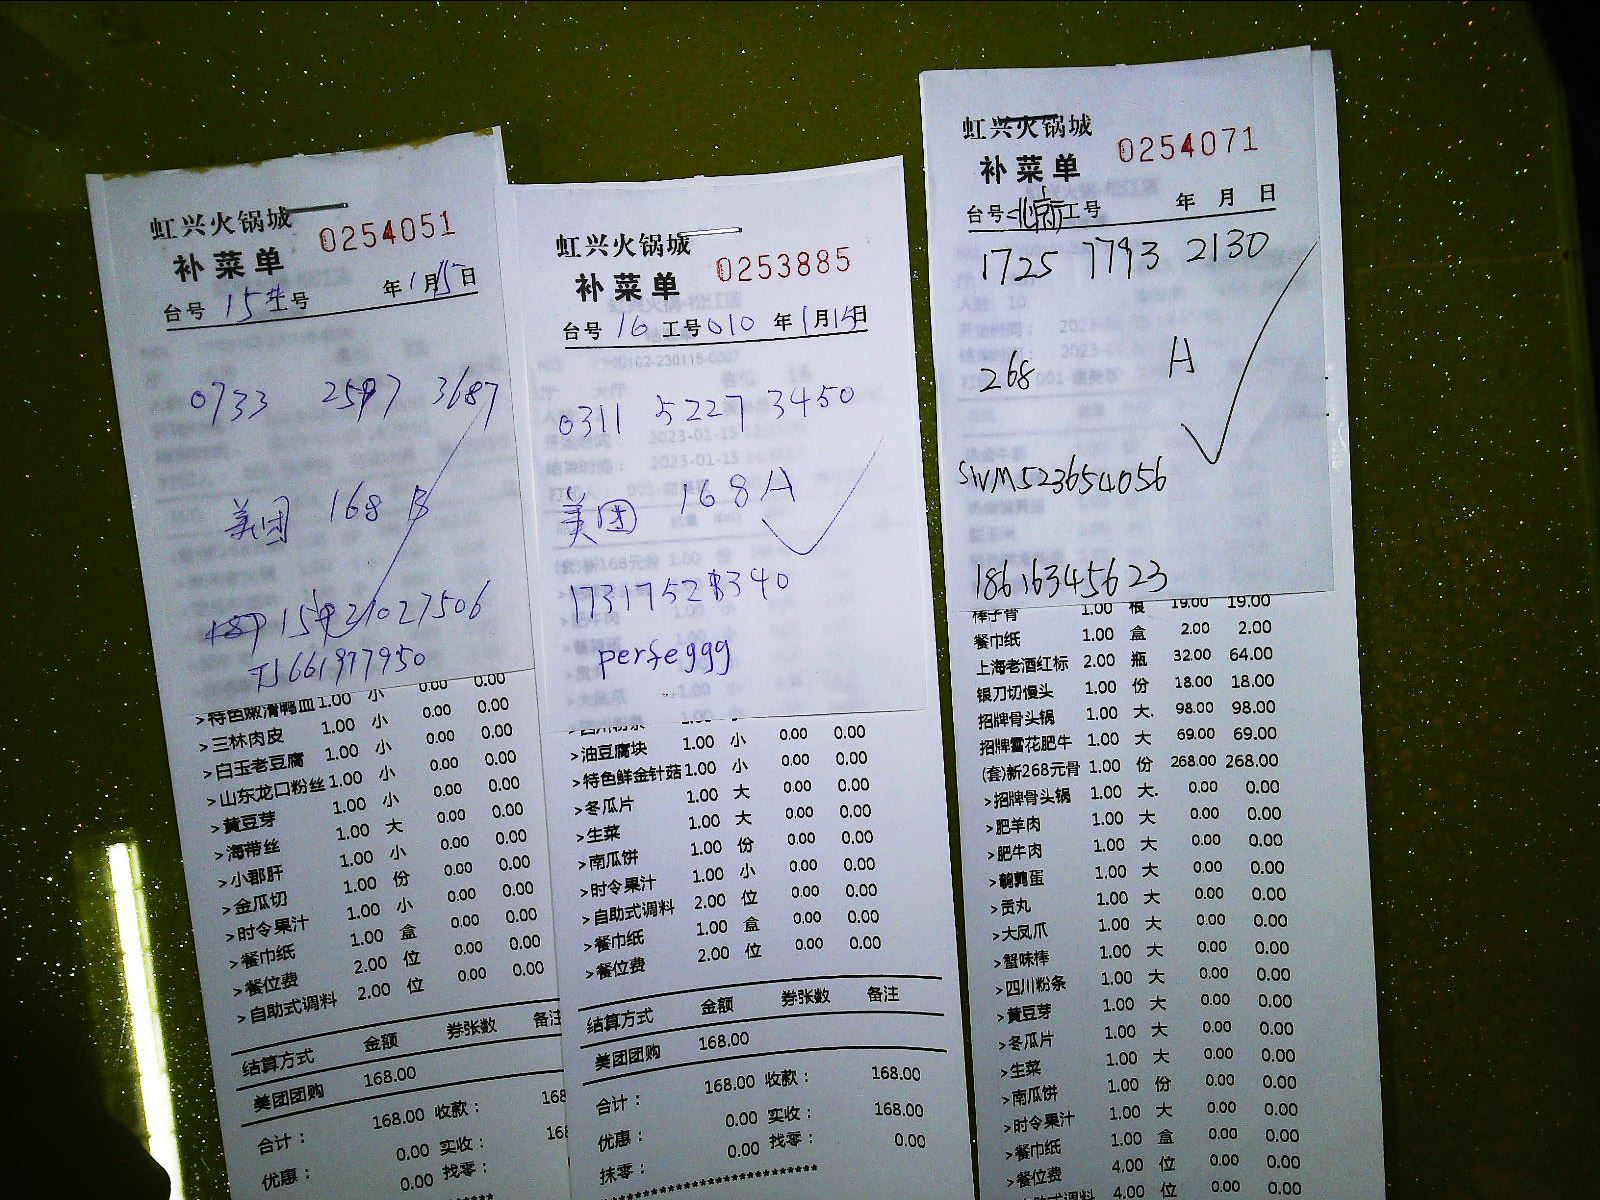 虹兴火锅城
0254051
补菜单
台号 15# 号 年1月15日
0733 2597 3687
美团 168 B
15821027506
TJ661977950
>特色嫩滑鸭血 1.00 小 0.00 0.00
>三林肉皮 1.00 小 0.00 0.00
>白玉老豆腐 1.00 小 0.00 0.00
>山东龙口粉丝 1.00 小 0.00 0.00
>黄豆芽 1.00 小 0.00 0.00
>海带丝 1.00 大 0.00 0.00
>小郡肝 1.00 小 0.00 0.00
>金瓜切 1.00 份 0.00 0.00
>时令果汁 1.00 小 0.00 0.00
>餐巾纸 1.00 盒 0.00 0.00
>餐位费 2.00 位 0.00 0.00
>自助式调料 2.00 位 0.00 0.00
结算方式 金额 券张数 备注
美团团购 168.00
合计： 168.00 收款： 168
优惠： 0.00 实收： 168
0.00 找零：
虹兴火锅城
0253885
补菜单
台号 16 工号 010 年1月15日
0311 5227 3450
美团 168 A
17317528340
perfeggg
>油豆腐块 1.00 小 0.00 0.00
>特色鲜金针菇 1.00 小 0.00 0.00
>冬瓜片 1.00 大 0.00 0.00
>生菜 1.00 大 0.00 0.00
>南瓜饼 1.00 份 0.00 0.00
>时令果汁 1.00 小 0.00 0.00
>自助式调料 2.00 位 0.00 0.00
>餐巾纸 1.00 盒 0.00 0.00
>餐位费 2.00 位 0.00 0.00
结算方式 金额 券张数 备注
美团团购 168.00
合计： 168.00 收款： 168.00
优惠： 0.00 实收： 168.00
抹零： 0.00 找零： 0.00
虹兴火锅城
0254071
补菜单
台号 北京 工号 年 月 日
1725 7793 2130
268 A
SWM523654056
18616345623
棒子骨 1.00 根 19.00 19.00
餐巾纸 1.00 盒 2.00 2.00
上海老酒红标 2.00 瓶 32.00 64.00
银刀切馒头 1.00 份 18.00 18.00
招牌骨头锅 1.00 大. 98.00 98.00
招牌雪花肥牛 1.00 大 69.00 69.00
(套)新268元骨 1.00 份 268.00 268.00
>招牌骨头锅 1.00 大. 0.00 0.00
>肥羊肉 1.00 大 0.00 0.00
>肥牛肉 1.00 大 0.00 0.00
>鹌鹑蛋 1.00 大 0.00 0.00
>贡丸 1.00 大 0.00 0.00
>大凤爪 1.00 大 0.00 0.00
>蟹味棒 1.00 大 0.00 0.00
>四川粉条 1.00 大 0.00 0.00
>黄豆芽 1.00 大 0.00 0.00
>冬瓜片 1.00 大 0.00 0.00
>生菜 1.00 大 0.00 0.00
>南瓜饼 1.00 份 0.00 0.00
>时令果汁 1.00 大 0.00 0.00
>餐巾纸 1.00 盒 0.00 0.00
>餐位费 4.00 位 0.00 0.00
>自助式调料 4.00 位 0.00 0.00